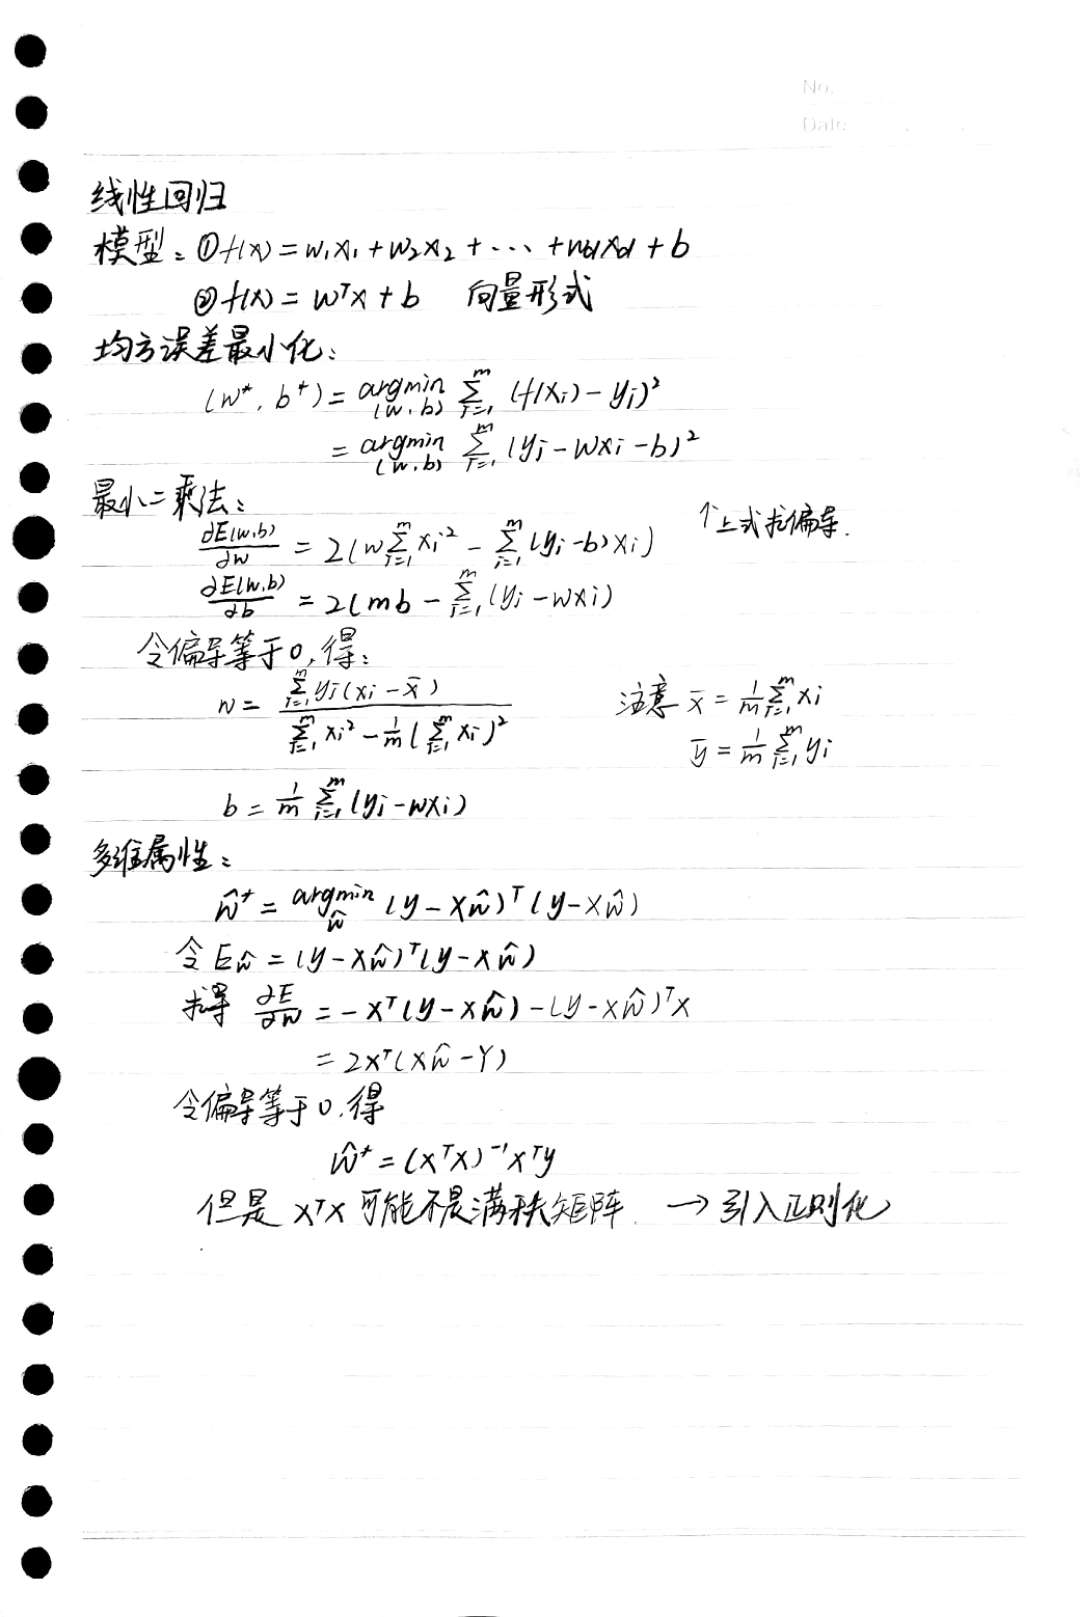 No.
Date
线性回归
模型：①f(x) = w₁x₁ + w₂x₂ + ··· + wdxd + b
②f(x) = wᵀx + b 向量形式
均方误差最小化：
(w*, b*) = argmin_(w,b) ∑_{i=1}^m (f(xi) - yi)²
= argmin_(w,b) ∑_{i=1}^m (yi - wxi - b)²
最小二乘法： ↑上式求偏导.
∂E(w,b)/∂w = 2(w∑_{i=1}^m xi² - ∑_{i=1}^m (yi - b)xi)
∂E(w,b)/∂b = 2(mb - ∑_{i=1}^m (yi - wxi)
令偏导等于0,得：
w = ∑_{i=1}^m yi(xi - x̄) / ∑_{i=1}^m xi² - 1/m(∑_{i=1}^m xi)² 注意 x̄ = 1/m ∑_{i=1}^m xi
ȳ = 1/m ∑_{i=1}^m yi
b = 1/m ∑_{i=1}^m (yi - wxi)
多维属性：
ŵ* = argmin_ŵ (y - Xŵ)ᵀ(y - Xŵ)
令 Eŵ = (y - Xŵ)ᵀ(y - Xŵ)
求导 ∂E/∂w = -Xᵀ(y - Xŵ) - (y - Xŵ)ᵀX
= 2Xᵀ(Xŵ - Y)
令偏导等于0.得
ŵ* = (XᵀX)⁻¹Xᵀy
但是 XᵀX 可能不是满秩矩阵. → 引入正则化